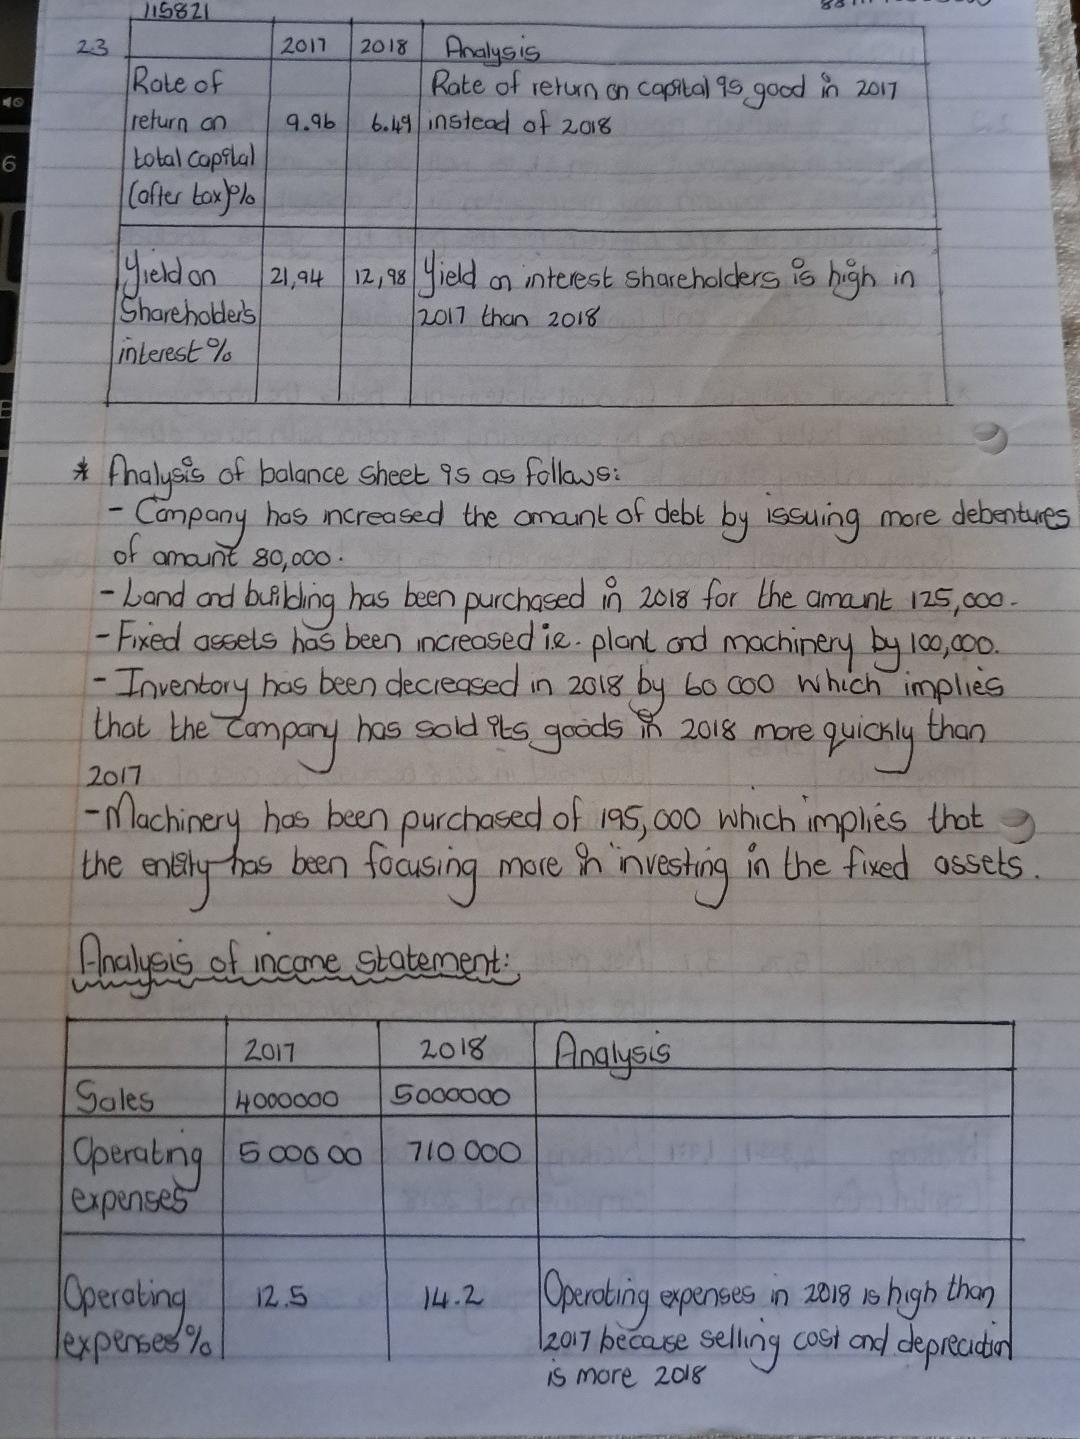 115821
2.3
2017 2018 Analysis
Rate of return on total capital (after tax)% 9.96 6.49 Rate of return on capital is good in 2017
instead of 2018
Yield on Shareholders interest % 21,94 12,98 Yield on interest shareholders is high in
2017 than 2018
* Analysis of balance sheet is as follows:
- Company has increased the amount of debt by issuing more debentures
of amount 80,000.
- Land and building has been purchased in 2018 for the amount 125,000.
- Fixed assets has been increased i.e. plant and machinery by 100,000.
- Inventory has been decreased in 2018 by 60 000 which implies
that the company has sold its goods in 2018 more quickly than
2017
- Machinery has been purchased of 195,000 which implies that
the entity has been focusing more in investing in the fixed assets.
Analysis of income statement:
2017 2018 Analysis
Sales 4000000 5000000
Operating expenses 500000 710 000
Operating expenses% 12.5 14.2 Operating expenses in 2018 is high than
2017 because selling cost and depreciation
is more 2018